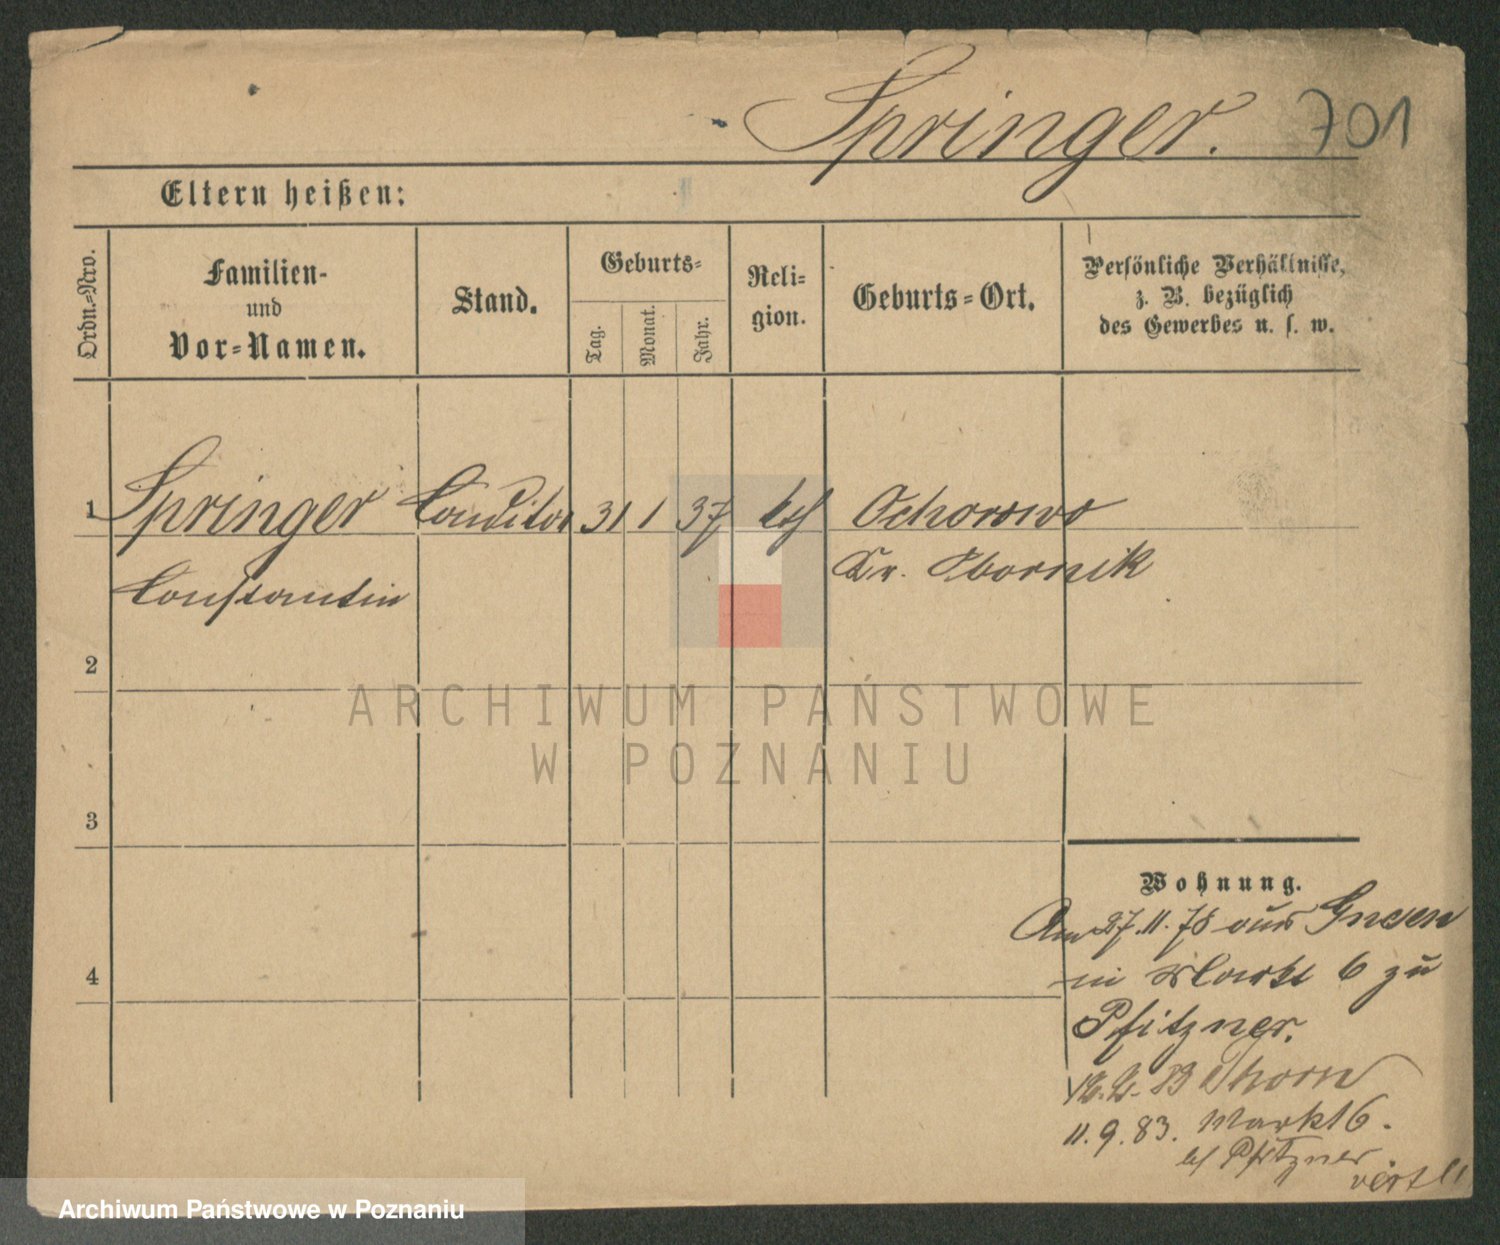 Springer. 701
Eltern heißen:
Ordn.-Nro.
Familien-
und
Vor-Namen.
Stand.
Geburts-
Tag.
Monat.
Jahr.
Reli-
gion.
Geburts-Ort.
Persönliche Verhältnisse,
z. B. bezüglich
des Gewerbes u. s. w.
1 Springer Conditor 31 1 37 kth Ochorowo
Constantin Kr. Obornik
2
ARCHIWUM PAŃSTWOWE
W POZNANIU
3
Wohnung.
Am 27.11.78 aus Gnesen
in Markt 6 zu
4
Pfitzner.
83 Thorn
11.9.83. Markt 6.
bei Pfitzner
Archiwum Państwowe w Poznaniu